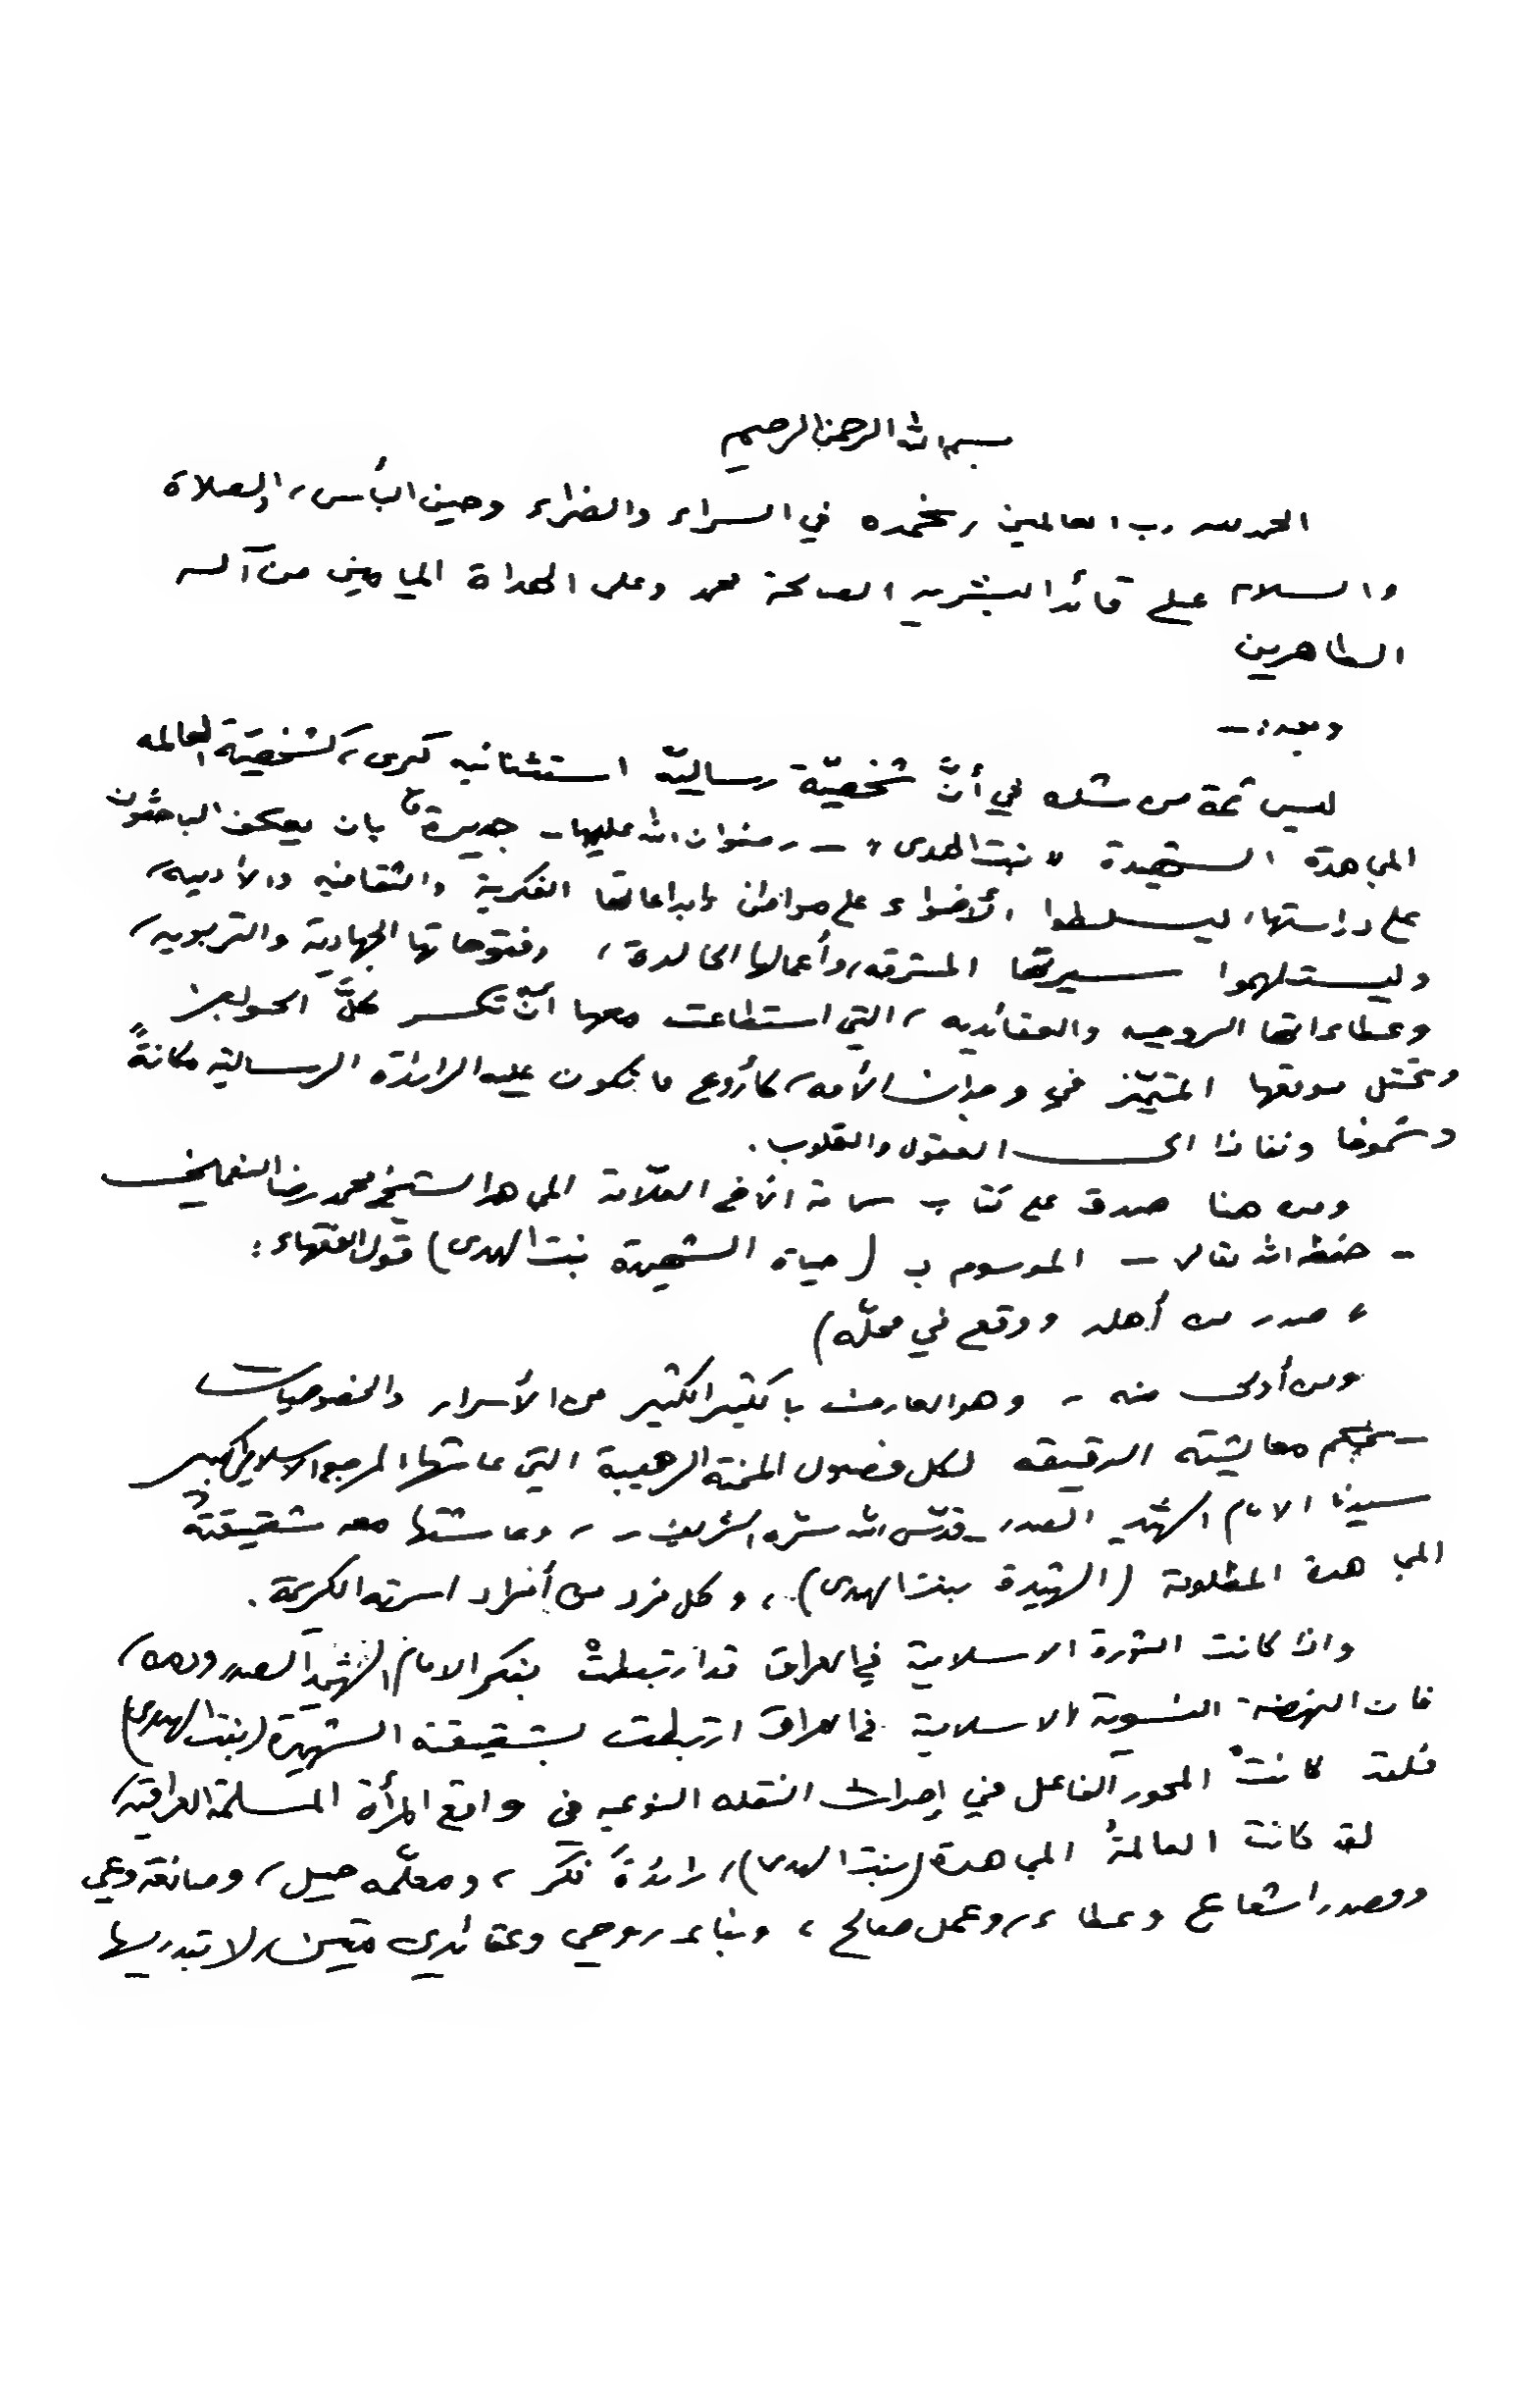 بسم الله الرحمن الرحيم
الحمد لله رب العالمين، نحمده في السراء والضراء وحين البأس، والصلاة
والسلام على قائد البشريه الصالحة محمد وعلى الهداة الميامين من آله
الطاهرين
وبعد: -
ليس ثمة من شك في أنَّ شخصيّة رساليّه استثنائيه كبرى، كشخصيّة العالمه
المجاهدة الشهيدة "بنت الهدى" - رضوان الله عليها - جديرة بان يعكف الباحثون
على دراستها، ليسلطوا الأضواء على مواطن إبداعاتها الفكرية والثقافيه والأدبيه،
وليستلهموا سيرتها المشرقه، وأعمالها الخالدة، وفتوحاتها الجهادية والتربويه،
وعطاءاتها الروحيه والعقائديه، التي استطاعت معها أن تكسر كلَّ الحواجز
وتحتل موقعها المتميّز في وجدان الأمه، كأروع ما تكون عليه الرائدة الرسالية مكانةً
وشموخا ونفاذا الى العقول والقلوب.
ومن هنا صدق على كتاب سماحة الأخ العلّامة المجاهد الشيخ محمد رضا النعماني
- حفظه الله تعالى - الموسوم ب (حياة الشهيدة بنت الهدى) قول الفقهاء:
" صدر من أهله ووقع في محلّه)
ومن أولى منه - وهو العارف بالكثير الكثير من الأسرار والخصوصيات
- بحكم معايشته الدقيقه لكل فصول المحنة الرهيبة التي عاشها المرجع الاسلامي الكبير
سيدنا الامام الشهيد الصدر - قدّس الله سرّه الشريف - ، وعاشتها معه شقيقتُه
المجاهدة المظلومة (الشهيدة بنت الهدى)، وكل فرد من أفراد اسرته الكريمة.
واذا كانت الثورة الاسلامية في العراق قد ارتبطتْ بفكر الامام الشهيد الصدر ودمه،
فان النهضة النسوية الاسلامية في العراق ارتبطت بشقيقته الشهيدة (بنت الهدى)
فلقد كانتْ المحور الفاعل في إحداث النقله النوعيه في واقع المرأة المسلمة العراقية،
لقد كانت العالمةُ المجاهدة (بنت الهدى)، رائدةَ فكر، ومعلّمه جيل، وصانعة وعي
ومصدر اشعاع وعطاء، وعمل صالح، وبناء روحي وعقائدي متين،